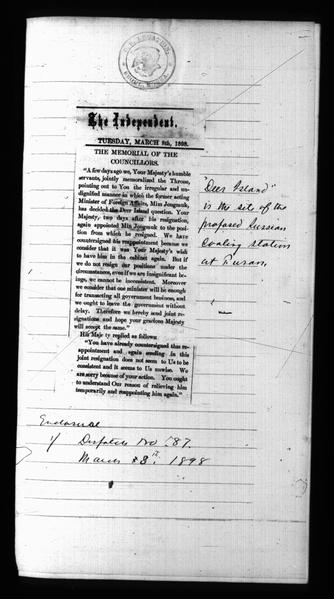 The Independent.
TUESDAY, MARCH 8th, 1898.
THE MEMORIAL OF THE
COUNCILLORS.
"A few days ago we, Your Majesty's humble
servants, jointly memoralized the Throne,
pointing out to You the irregular and un-
dignified manner in which the former acting
Minister of Foreign Affairs, Min Jongmuk,
has decided the Deer Island question. Your
Majesty, two days after his resignation,
again appointed Min Jongmuk to the posi-
tion from which he resigned. We have
countersigned his reappointment because we
consider that it was Your Majesty's wish
to have him in the cabinet again. But if
we do not resign our positions under the
circumstances, even if we are insignificant be-
ings, we cannot be inconsistent. Moreover
we consider that one minister will be enough
for transacting all government business, and
we ought to leave the government without
delay. Therefore we hereby send joint re-
signations and hope your gracious Majesty
will accept the same."
His Majesty replied as follows:
"You have already countersigned this re-
appointment and again sending in this
joint resignation does not seem to Us to be
consistent and it seems to Us unwise. We
are sorry because of your action. You ought
to understand Our reason of relieving him
temporarily and reappointing him again."
"Deer Island"
is the site of the
proposed Russian
Coaling station
at Fusan.
Enclosure
1/ Dispatch No 87.
March 8th. 1898